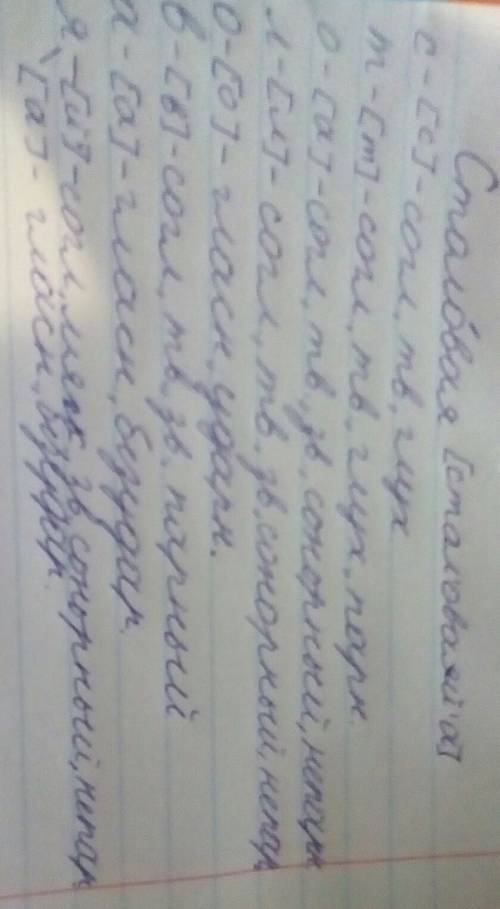 Сталовая [сталовай'а]
с-[с]-согл, тв, глух
т-[т]-согл, тв, глух, парн.
о-[а]-согл, тв, зв, сонорный, непарн
л-[л]-согл, тв, зв, сонорный, непар
о-[о]-гласн, ударн.
в-[в]-согл, тв, зв, парный
а-[а]-гласн, безудар.
я-[й']-согл, мягк, зв, сонорный, непар,
[а]-гласн, безудар.